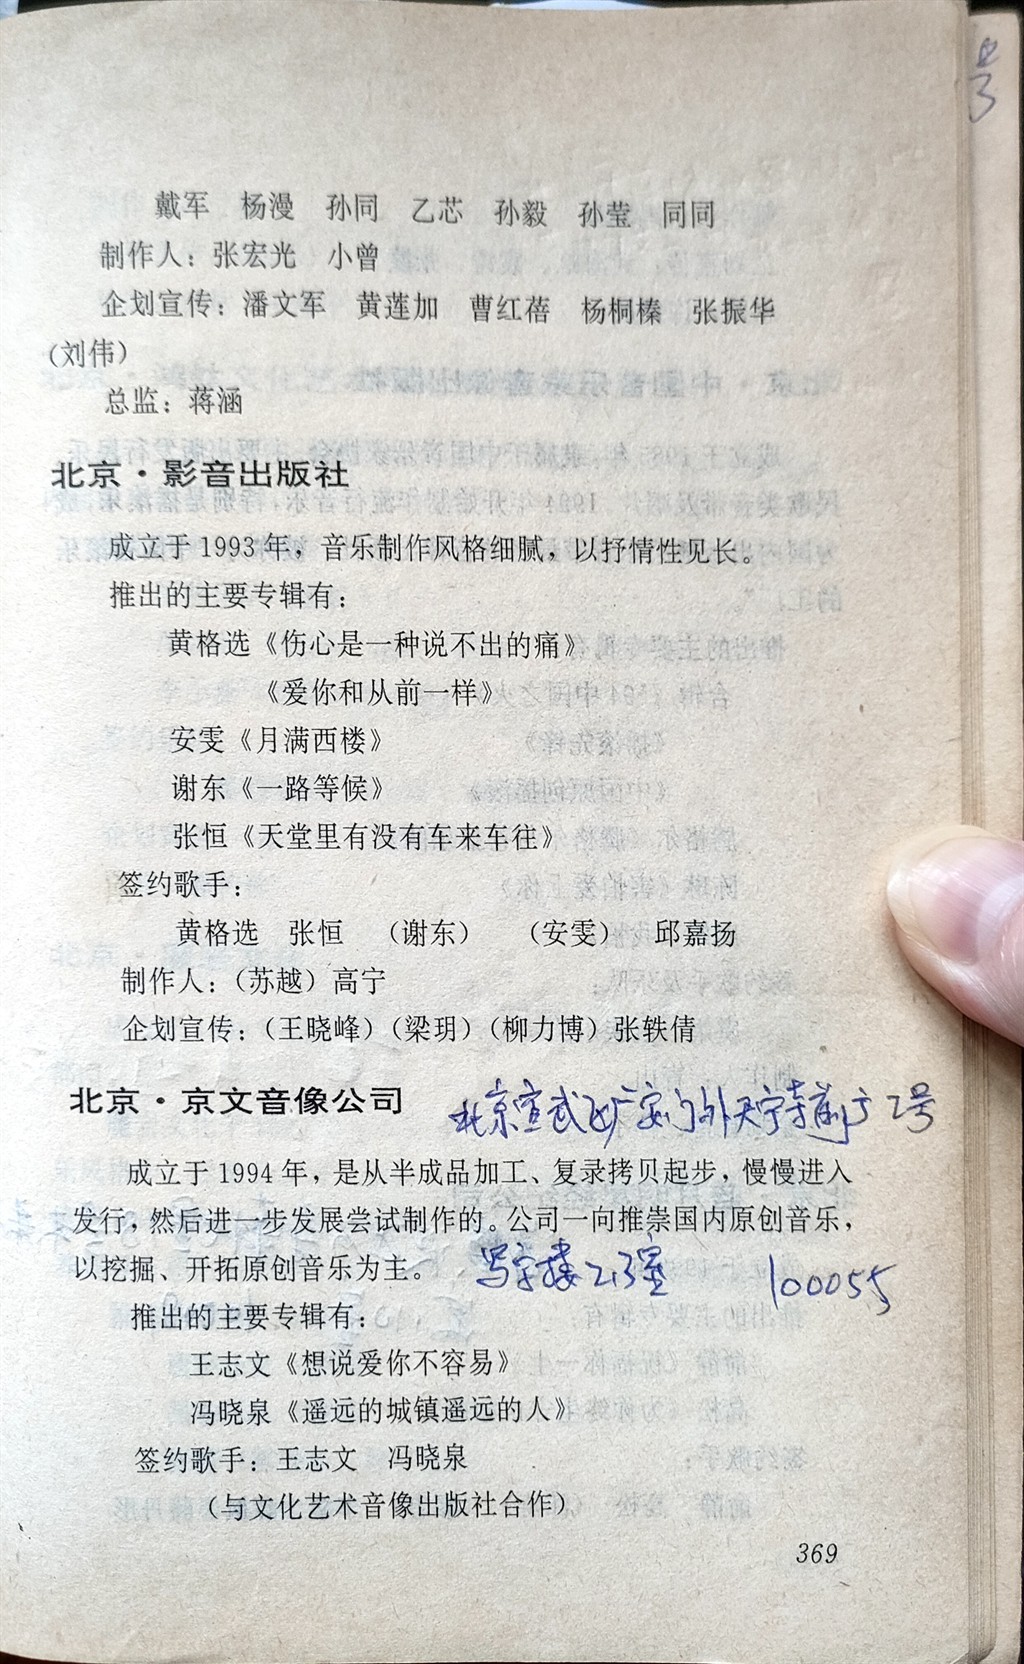 戴军 杨漫 孙同 乙芯 孙毅 孙莹 同同
制作人：张宏光 小曾
企划宣传：潘文军 黄莲加 曹红蓓 杨桐榛 张振华
（刘伟）
总监：蒋涵
北京·影音出版社
成立于1993年，音乐制作风格细腻，以抒情性见长。
推出的主要专辑有：
黄格选《伤心是一种说不出的痛》
《爱你和从前一样》
安雯《月满西楼》
谢东《一路等候》
张恒《天堂里有没有车来车往》
签约歌手：
黄格选 张恒 （谢东） （安雯） 邱嘉扬
制作人：（苏越）高宁
企划宣传：（王晓峰）（梁玥）（柳力博）张轶倩
北京·京文音像公司
北京宣武区广安门外天宁寺前街2号
成立于1994年，是从半成品加工、复录拷贝起步，慢慢进入
发行，然后进一步发展尝试制作的。公司一向推崇国内原创音乐，
以挖掘、开拓原创音乐为主。
写字楼213室 100055
推出的主要专辑有：
王志文《想说爱你不容易》
冯晓泉《遥远的城镇遥远的人》
签约歌手：王志文 冯晓泉
（与文化艺术音像出版社合作）
369